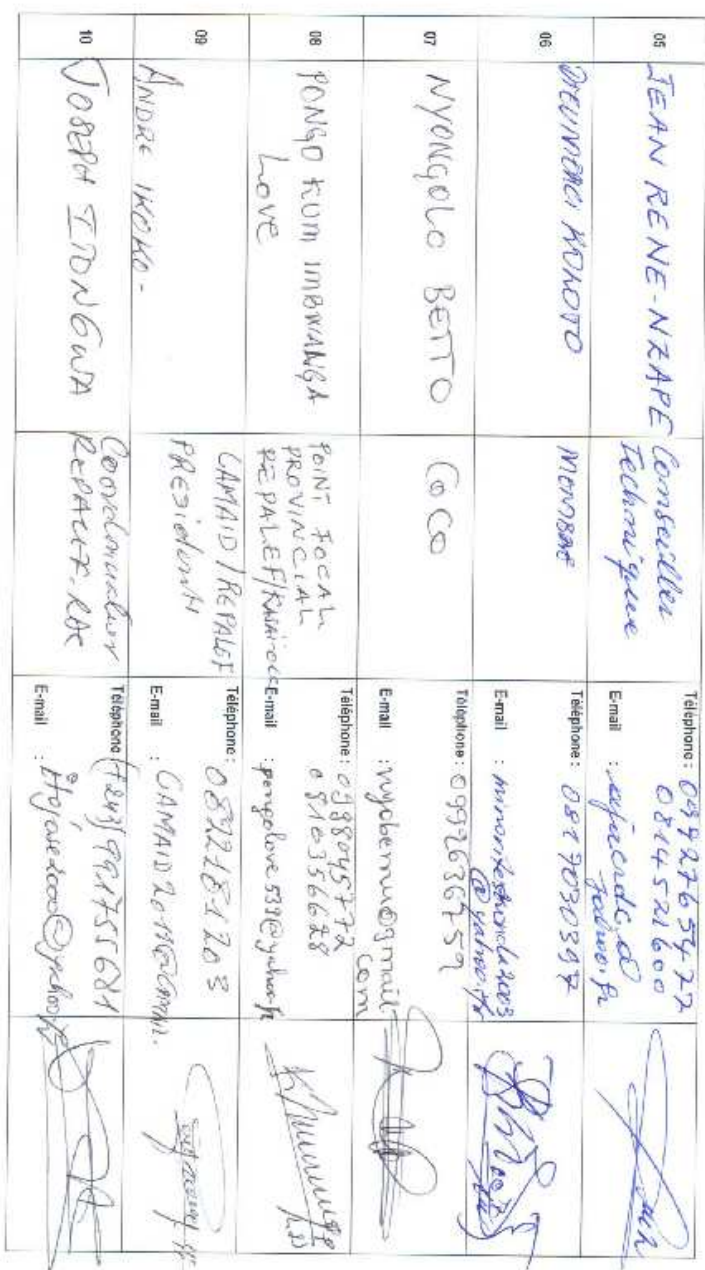 05
JEAN RENE-NZAPE
Conseiller
Technique
Téléphone : 0997276 5477
0814521600
E-mail :
yahoo.fr
06
Téléphone : 0817030397
E-mail :
@yahoo.fr
07
NYONGOLO BETTO
CoCo
Téléphone : 0992636759
E-mail : nyobemu@gmail
com
08
PONGO KUM IMBWANGA
Love
POINT FOCAL
PROVINCIAL
REPALEF/KASAI-OCC
Téléphone : 0998045772
0810356628
E-mail : pongolove539@yahoo.fr
09
ANDRE IKOKO-
CAMAID/REPALEF
PRESIDENT
Téléphone : 0822181203
E-mail :
10
JOSEPH ITONGWA
Coordonnateur
REPALEF.RDC
Téléphone (+243) 991755681
E-mail :